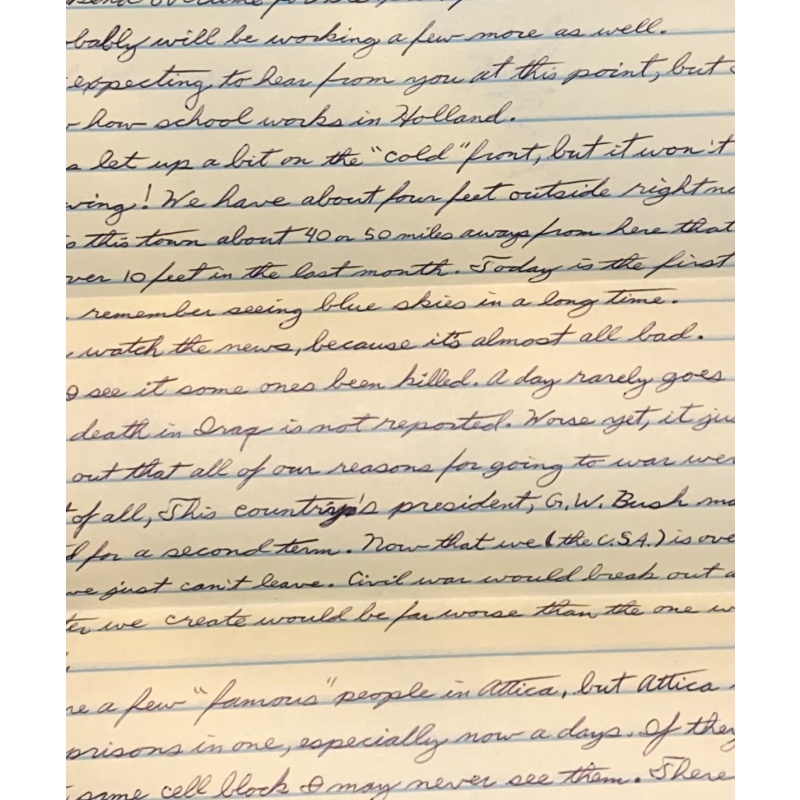 bably will be working a few more as well.
expecting to hear from you at this point, but
how school works in Holland.
let up a bit on the "cold" front, but it won't
wing! We have about four feet outside right no
this town about 40 or 50 miles aways from here that
ver 10 feet in the last month. Today is the first
remember seeing blue skies in a long time.
watch the news, because it's almost all bad.
I see it some ones been killed. A day rarely goes
death in Iraq is not reported. Worse yet, it jus
out that all of our reasons for going to war wer
t of all, This country's president, G.W. Bush ma
d for a second term. Now that we (the U.S.A.) is ove
we just can't leave. Civil war would break out a
ter we create would be far worse than the one w
re a few "famous" people in Attica, but Attica
prisons in one, especially now a days. If they
same cell block I may never see them. There